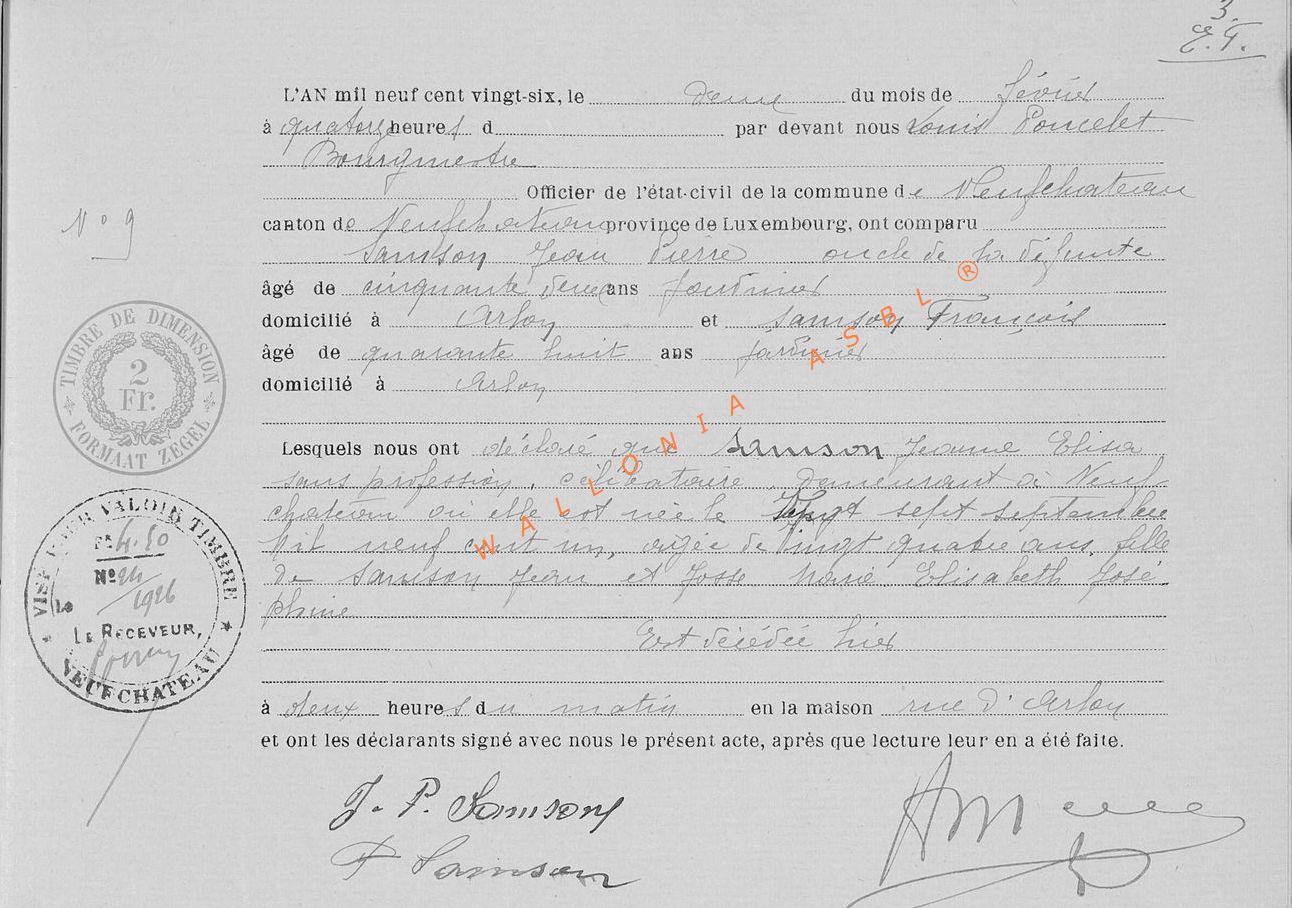 3.
E.T.
L'AN mil neuf cent vingt-six, le deux du mois de Février
à quatorze heures d par devant nous Louis Poncelet
Bourgmestre
Officier de l'état-civil de la commune de Neufchateau
N° 9
canton de Neufchateau province de Luxembourg, ont comparu
Samson Jean Pierre oncle de la défunte
âgé de cinquante deux ans jardinier
domicilié à Arlon et Samson François
âgé de quarante huit ans jardinier
domicilié à Arlon
TIMBRE DE DIMENSION
2
Fr.
FORMAAT ZEGEL
Lesquels nous ont déclaré que Samson Jeanne Elisa
sans profession, célibataire, demeurant à Neuf
chateau où elle est née le Vingt sept septembre
Mil neuf cent un, agée de Vingt quatre ans, fille
de Samson Jean et Josse Marie Elisabeth José
phine
Est décédée hier
à deux heures du matin en la maison rue d'Arlon
et ont les déclarants signé avec nous le présent acte, après que lecture leur en a été faite.
VISÉ POUR VALOIR TIMBRE
Fr 4.50
N° 24
Le 1926
LE RECEVEUR,
NEUFCHATEAU
J. P. Samson
F Samson
WALLONIA ASBL ®